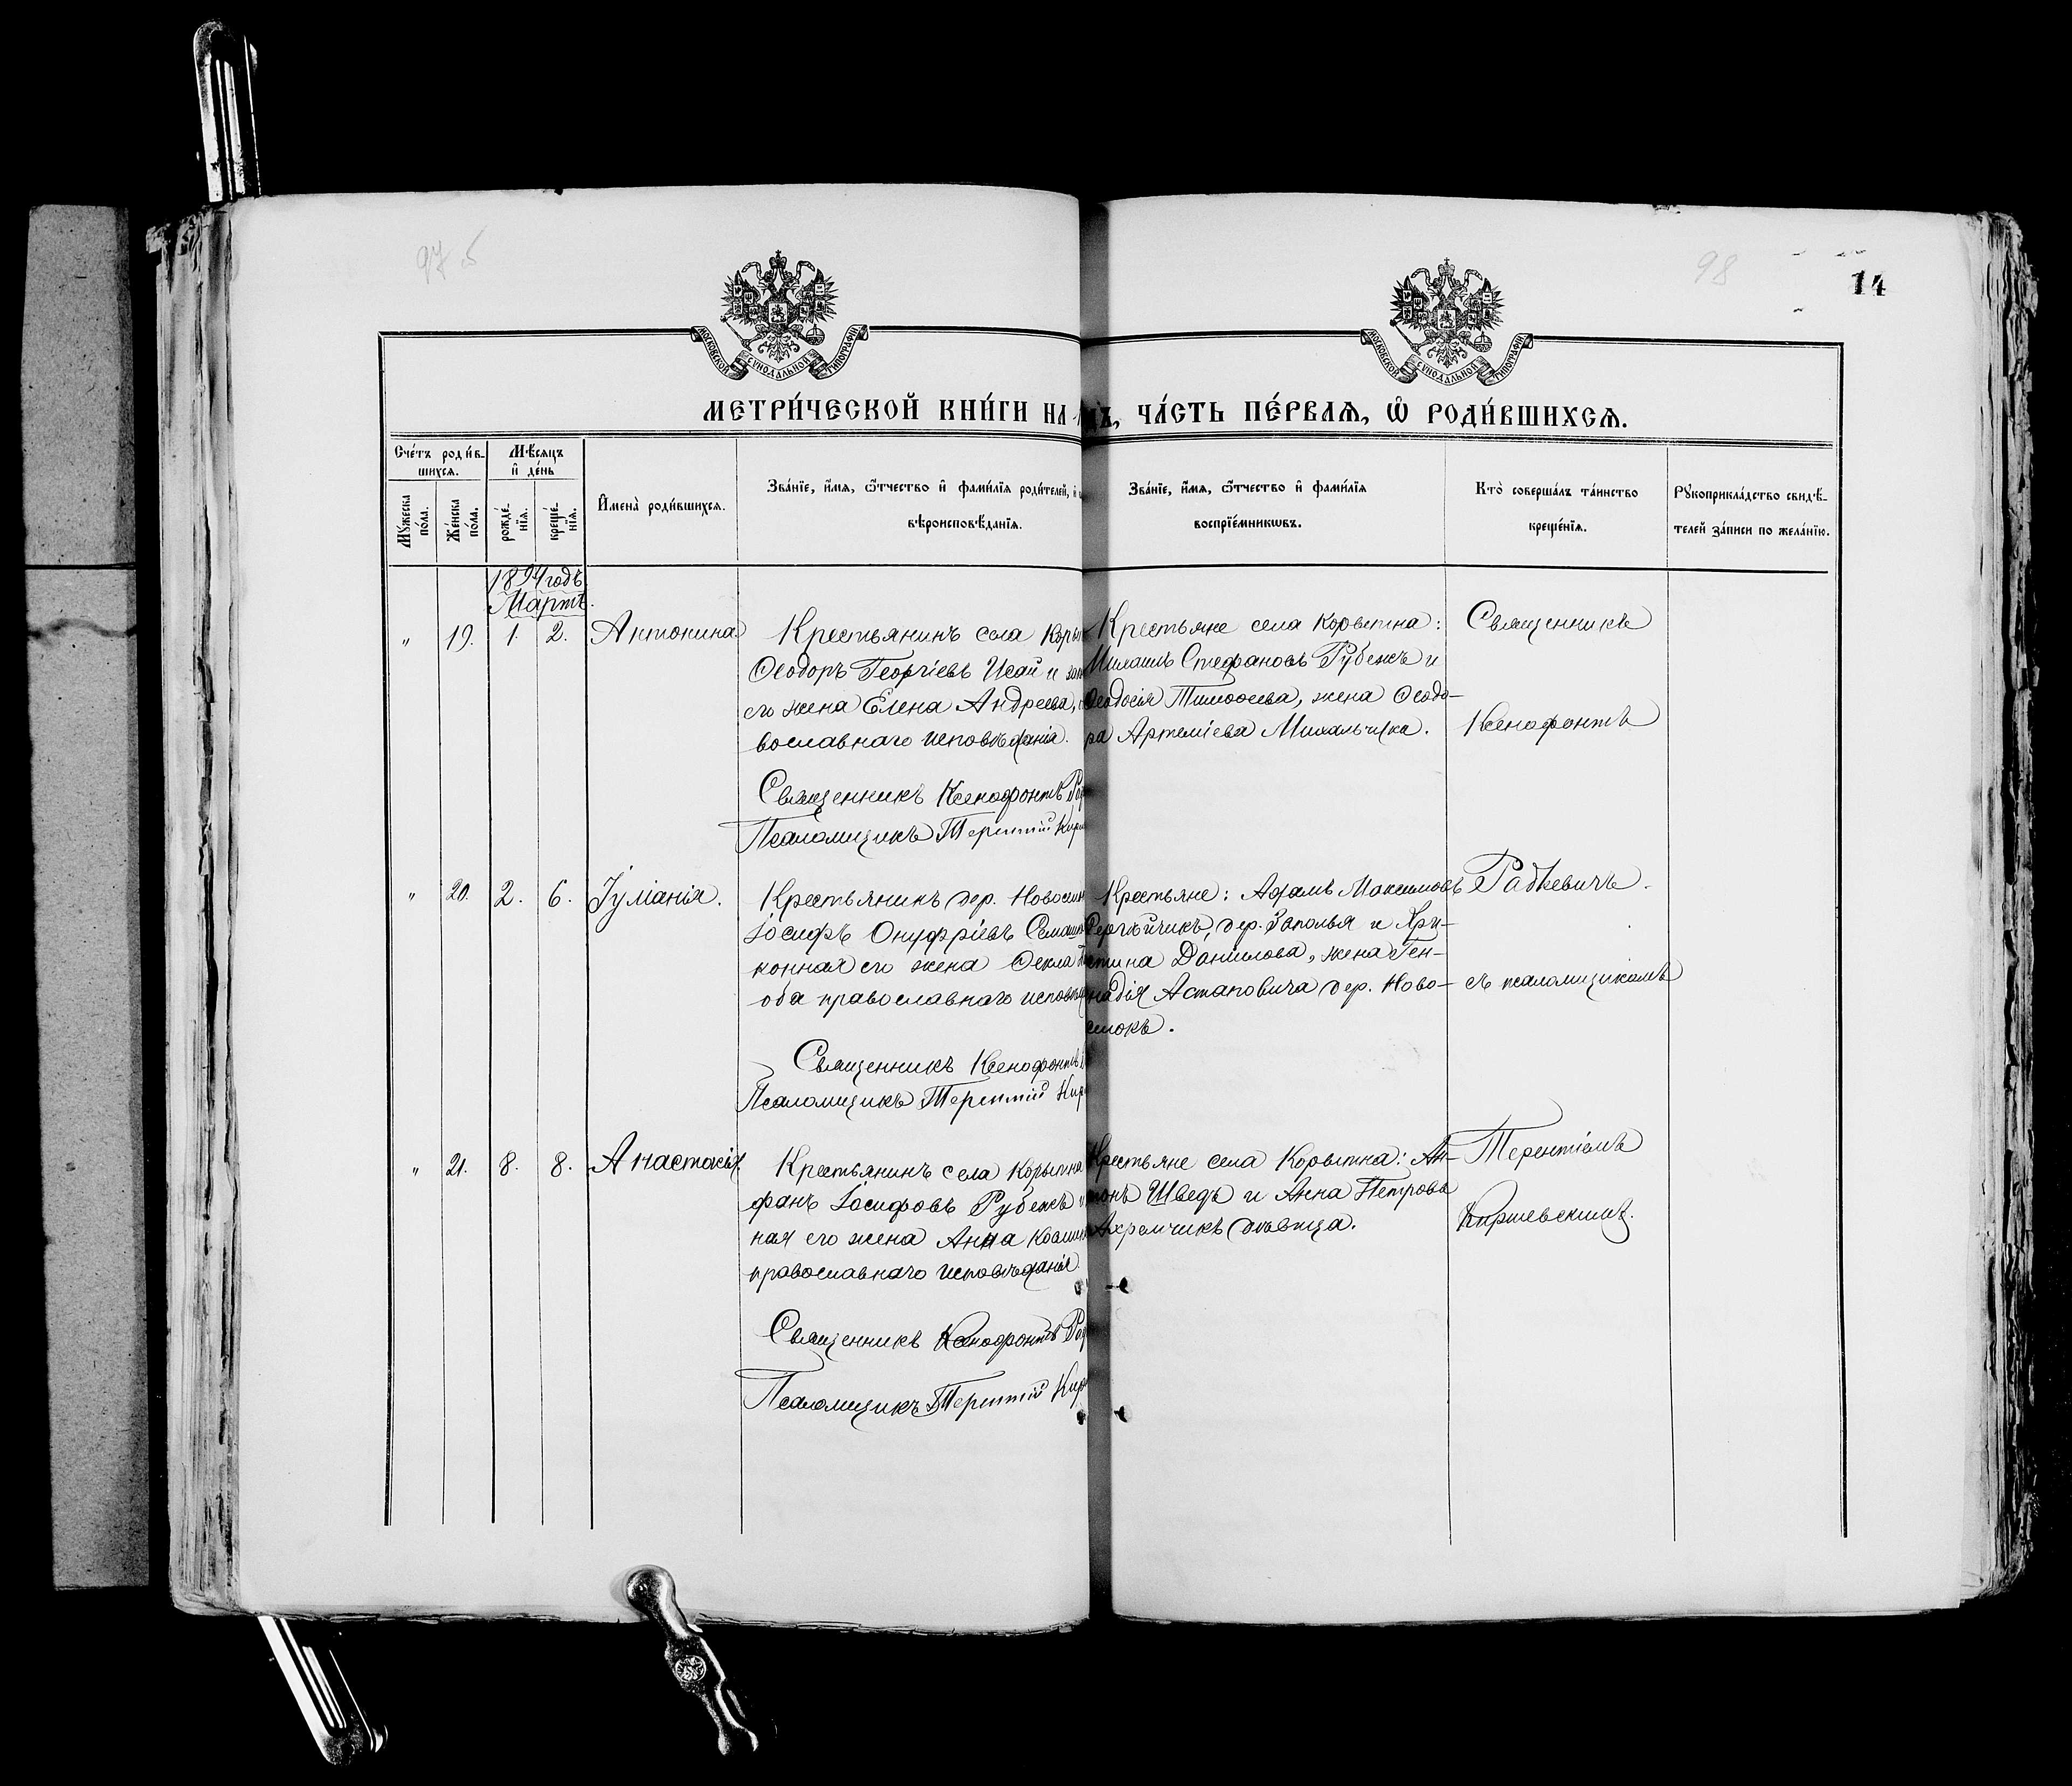 97 б
98
14
МОСКОВСКОЙ СѴНОДАЛЬНОЙ ТИПОГРАФІИ
МОСКОВСКОЙ СѴНОДАЛЬНОЙ ТИПОГРАФІИ
МЕТРИ́ЧЕСКОЙ КНИ́ГИ НА
ЧА́СТЬ ПЕ́РВАѦ, Ѡ҆ РОДИ́ВШИХСѦ.
Сче́тъ роди́в-
шихсѧ.
Мѣ́сѧцъ
и҆ де́нь
Мꙋ́жеска по́ла.
Же́нска по́ла.
рожде́-
нїѧ.
креще́-
нїѧ.
И҆мена̀ роди́вшихсѧ.
Зва́нїе, и҆́мѧ, ѻ҆́тчество и҆ фами́лїѧ роди́телей,
вѣроисповѣ́данїѧ.
Зва́нїе, и҆́мѧ, ѻ҆́тчество и҆ фами́лїѧ
воспрїе́мникѡвъ.
Кто̀ соверша́лъ та́инство
креще́нїѧ.
Рꙋкоприкла́дство свидѣ́-
телей за́писи по жела́нїю.
1894 годъ
Мартъ.
" 19. 1. 2. Антонина
Крестьянинъ села Коры
Ѳеодоръ Георгіевъ Исай и зак
его жена Елена Андреева,
вославнаго исповѣданія.
Священникъ Ксенофонтъ Ра
Псаломщикъ Терентій Кирк
Крестьяне села Корытна:
Михаилъ Стефановъ Рубежъ и
Ѳеодосія Тимоѳеева, жена Ѳеодо-
ра Артеміева Михальчика.
Священникъ
Ксенофонтъ
" 20. 2. 6. Іуліанія.
Крестьянинъ дер. Новосел
Іосифъ Онуфріевъ Семаш
конная его жена Ѳекла
оба православнаго исповѣд
Священникъ Ксенофонтъ
Псаломщикъ Терентій Кир
Крестьяне: Адамъ Максимовъ
Сергѣйчикъ, дер. Заполья и Хри-
стина Даніилова, жена Ген-
надія Астаповича дер. Ново-
селокъ.
Радкевичъ.
съ псаломщикомъ
" 21. 8. 8. Анастасія
Крестьянинъ села Корытна
фанъ Іосифовъ Рубежъ и
ная его жена Анна Косми
православнаго исповѣданія.
Священникъ Ксенофонтъ Рад
Псаломщикъ Терентій Кир
Крестьяне села Корытна: Ан-
тонъ Шведъ и Анна Петрова
Ахремчикъ дѣвица.
Терентіемъ
Киркевскимъ.